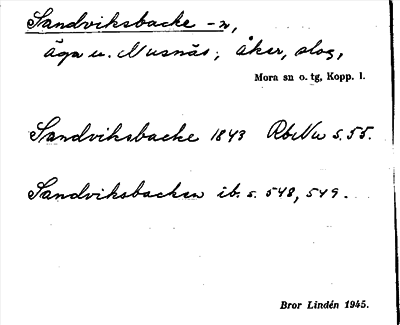 Sandviksbacke -n,
äga u. Nusnäs; åker, slog,
Mora sn o. tg, Kopp. l.
Sandviksbacke 1843 RbNu s. 55.
Sandviksbacken ib. s. 548, 549.
Bror Lindén 1945.